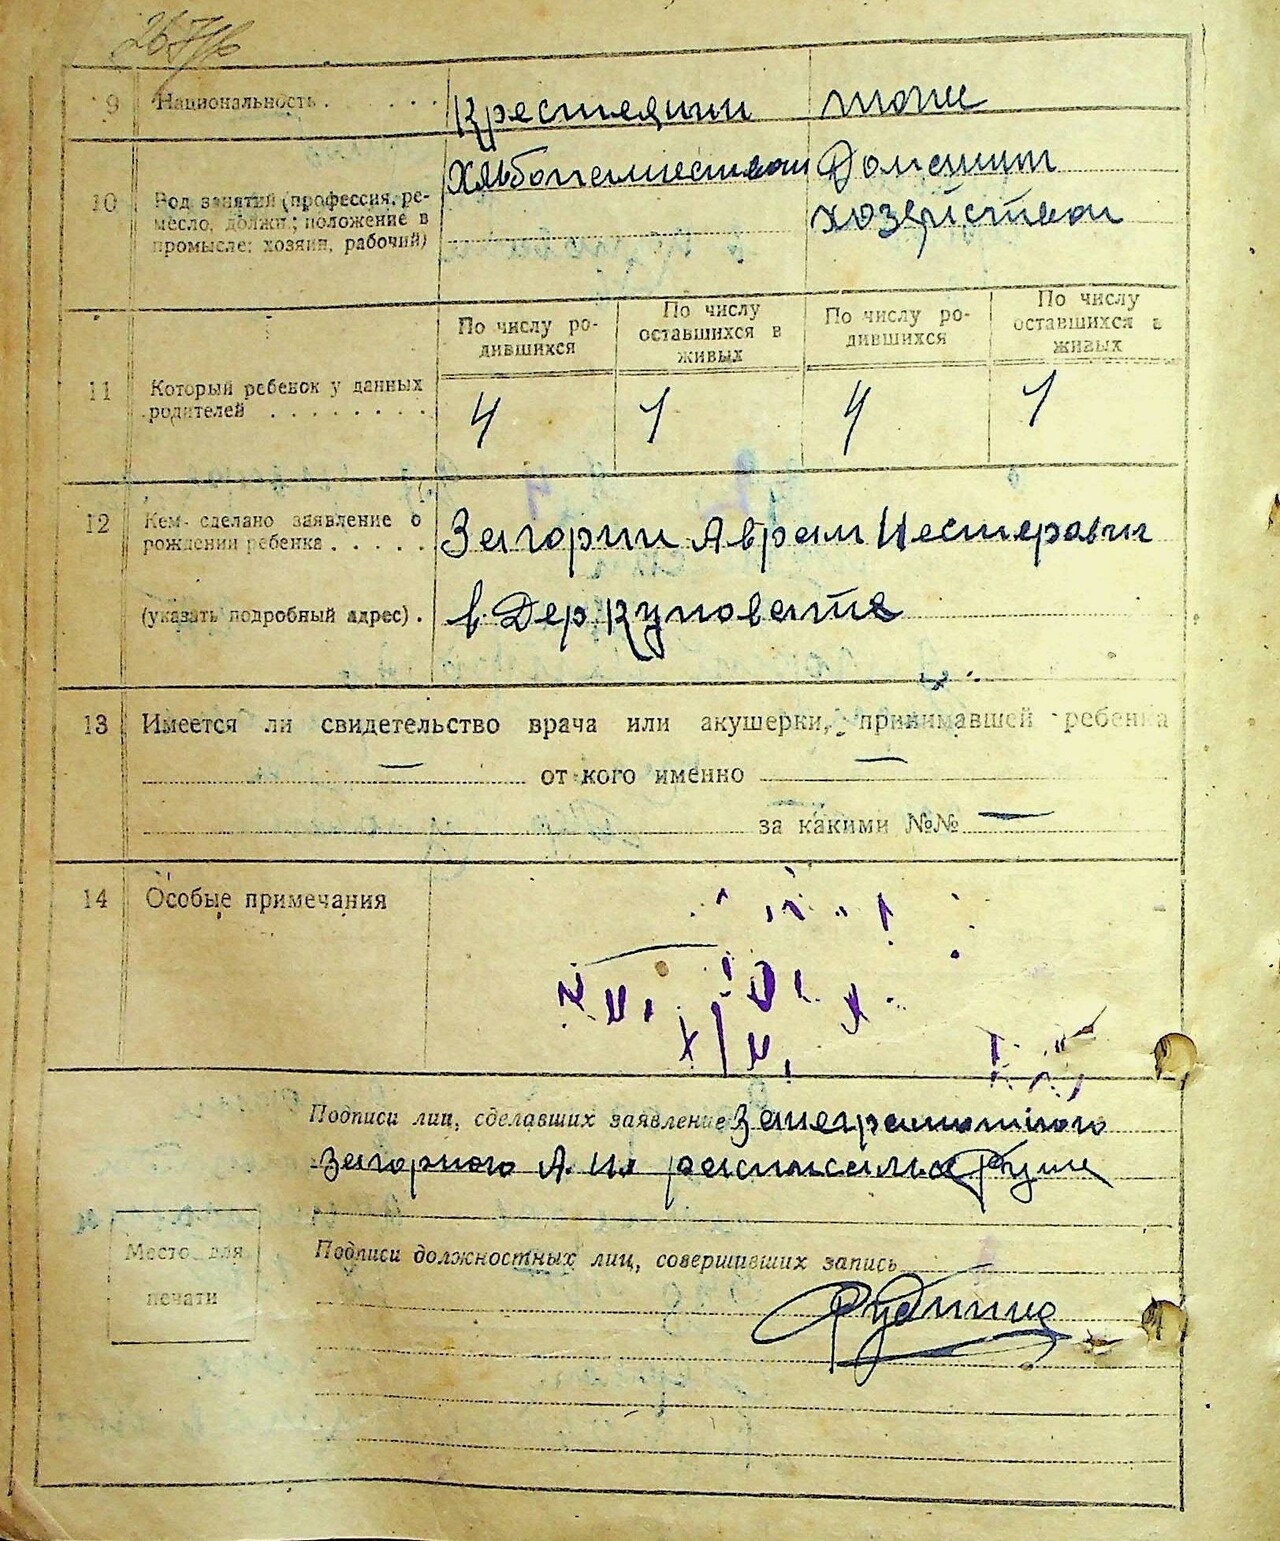 267
9 Национальность . . . . . Крестяяин тоже
10 Род занятий (профессия, ре-
месло, должн.; положение в
промысле: хозяин, рабочий)
Хлъбопашеством Домашним
хозейством
11 Который ребенок у данных
родителей . . . . . . . .
По числу ро-
дившихся
По числу
оставшихся в
живых
По числу ро-
дившихся
По числу
оставшихся в
живых
4 1 4 1
12 Кем сделано заявление о
рождении ребенка . . . . . Загорин Аврам Нестеравич
(указать подробный адрес) . в Дер Куповате
13 Имеется ли свидетельство врача или акушерки, принимавшей ребенка
— от кого именно —
за какими №№ —
14 Особые примечания
Подписи лиц, сделавших заявление Занеграмотного
Загорного А. Н. расписался
Место для
печати
Подписи должностных лиц, совершивших запись